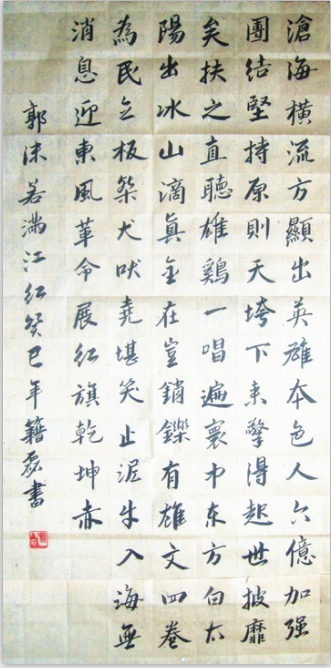 滄海橫流方顯出英雄本色人六億加强
團結堅持原則天垮下来擎得起世披靡
矣扶之直聽雄鷄一唱遍寰中东方白太
陽出冰山滴真金在豈銷鑠有雄文四卷
為民立极桀犬吠堯堪笑止泥牛入海無
消息迎東風革命展紅旗乾坤赤
郭沫若滿江紅癸巳年籍磊書